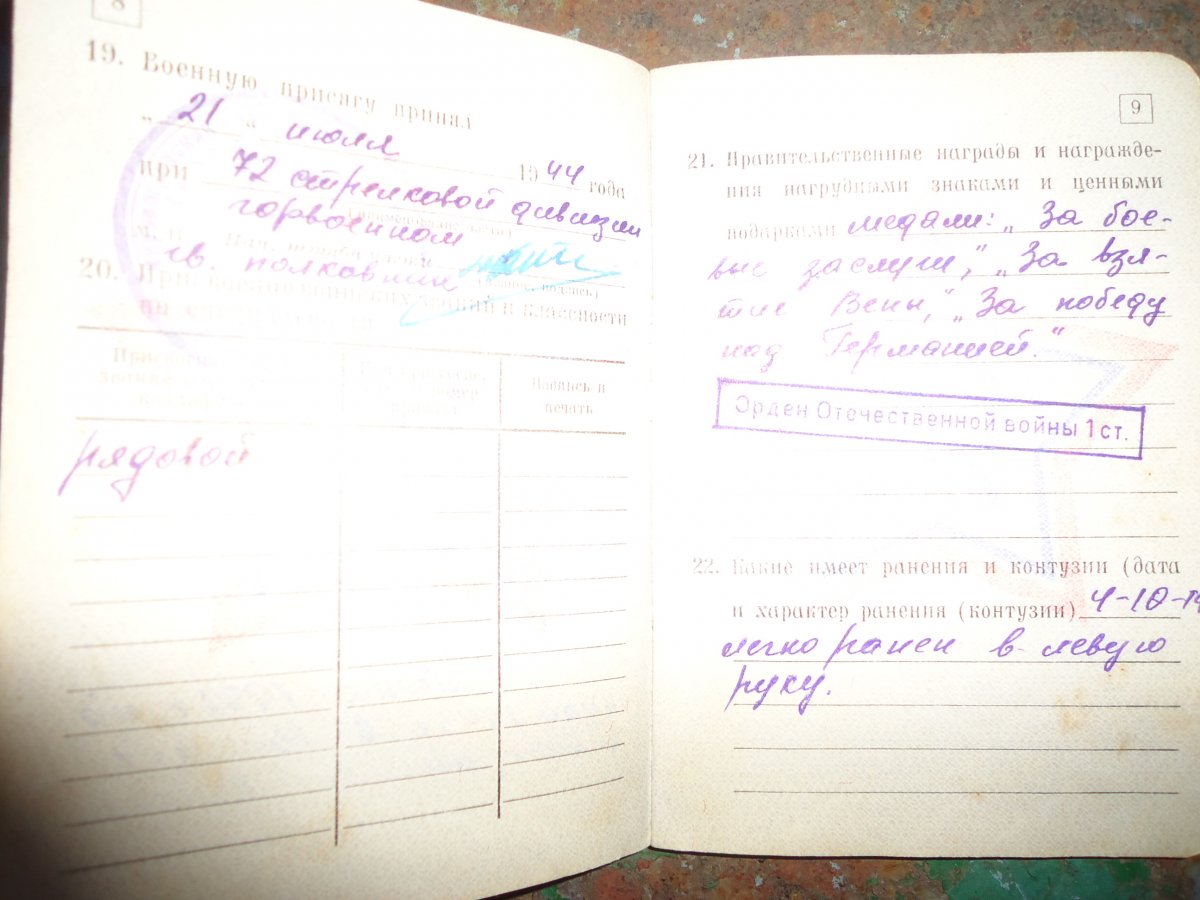 8
19. Военную присягу принял
„ 21 “ июля 1944 года
при 72 стрелковой дивизии
горвоенком
гв. полковник
20. Присвоение воинских званий и классности
рядовой
Подпись и
печать
9
21. Правительственные награды и награжде-
ния нагрудными знаками и ценными
подарками медали: „За бое-
вые заслуги“, „За взя-
тие Вены“, „За победу
над Германией.“
Орден Отечественной войны 1 ст.
22. Какие имеет ранения и контузии (дата
и характер ранения (контузии) 4-10-
легко ранен в левую
руку.